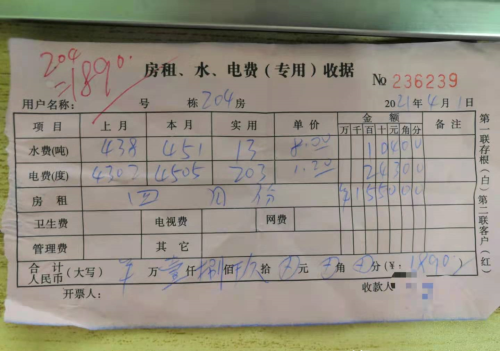 204
=1890.
房租、水、电费（专用）收据
No 236239
用户名称： 号 栋204房 2021年4月1日
项目 上月 本月 实用 单价 金额 备注
万千百十元角分
水费(吨) 438 451 13 8.00 10400
电费(度) 4302 4505 203 1.20 24300
房租 四月份 ¥155000
卫生费 电视费 网费
管理费 其它
合计人民币(大写) 万壹仟捌佰 拾 元 角 分(¥: 1890
开票人： 收款人
第一联存根(白) 第二联客户(红)